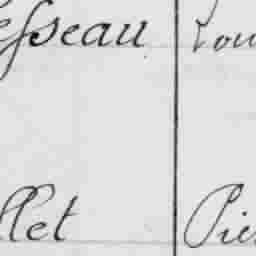 esseau Lou
llet Pie